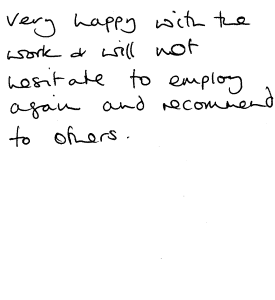 very happy with the
work & will not
hesitate to employ
again and recommend
to others.